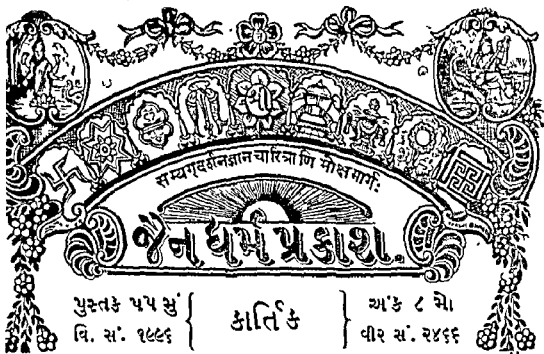 सम्यग्दर्शनज्ञानचारित्राणि मोक्षमार्गः
જૈન ધર્મ પ્રકાશ.
પુસ્તક ૫૫ મું
વિ. સં. ૧૯૯૬
કાર્તિક
અંક ૮ મો
વીર સં. ૨૪૬૬